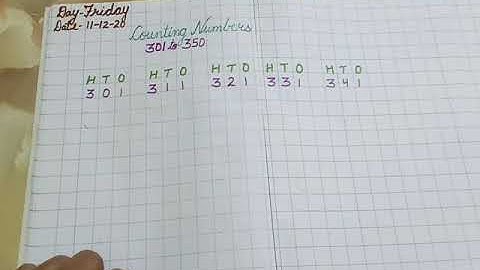 Day-Friday
Date-11-12-20
Counting Numbers
301 to 350
H T O H T O H T O H T O H T O
3 0 1 3 1 1 3 2 1 3 3 1 3 4 1